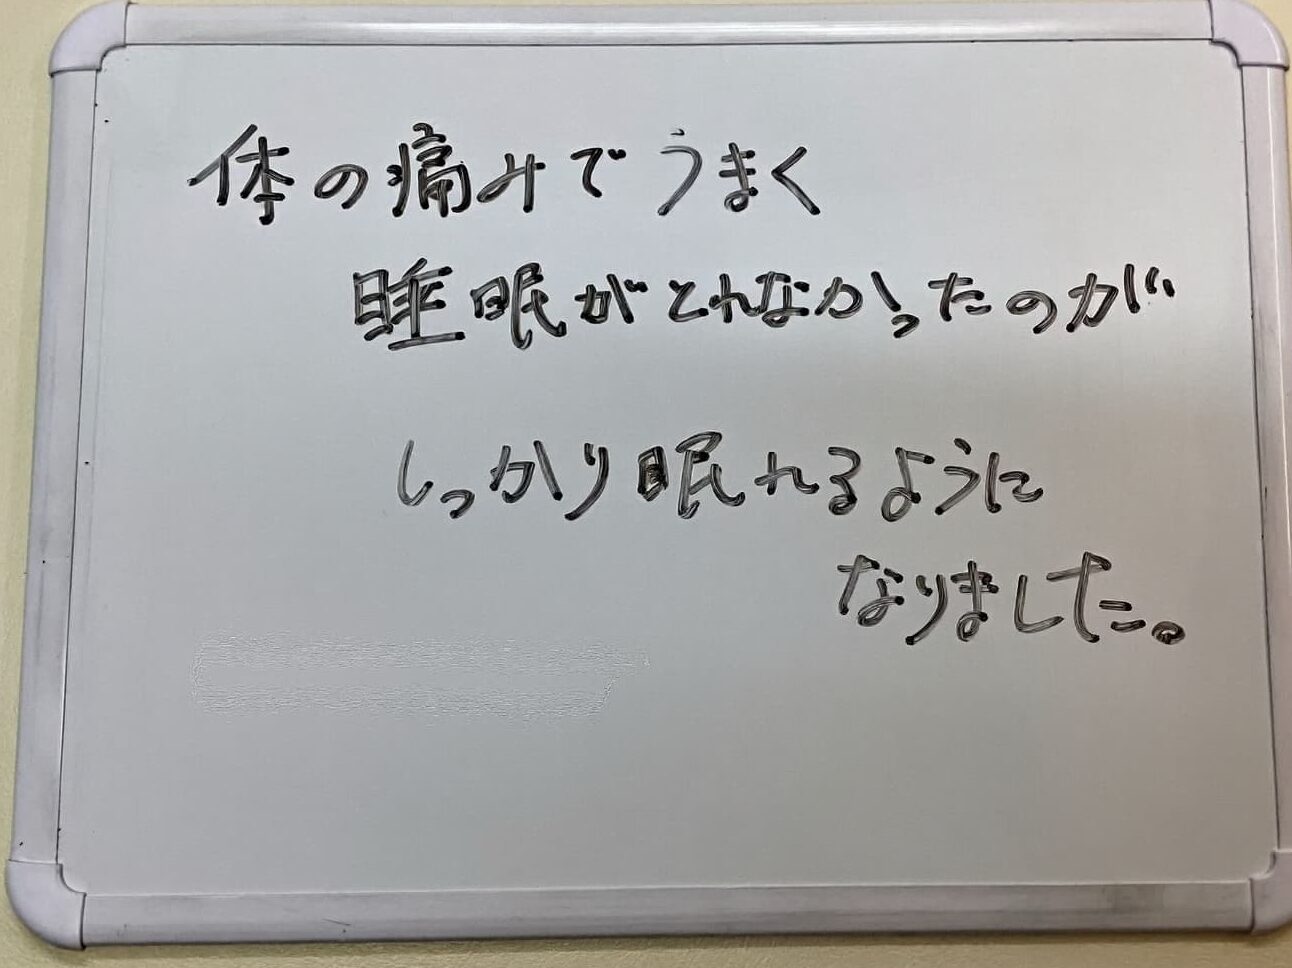 体の痛みでうまく
睡眠がとれなかったのが
しっかり眠れるように
なりました。